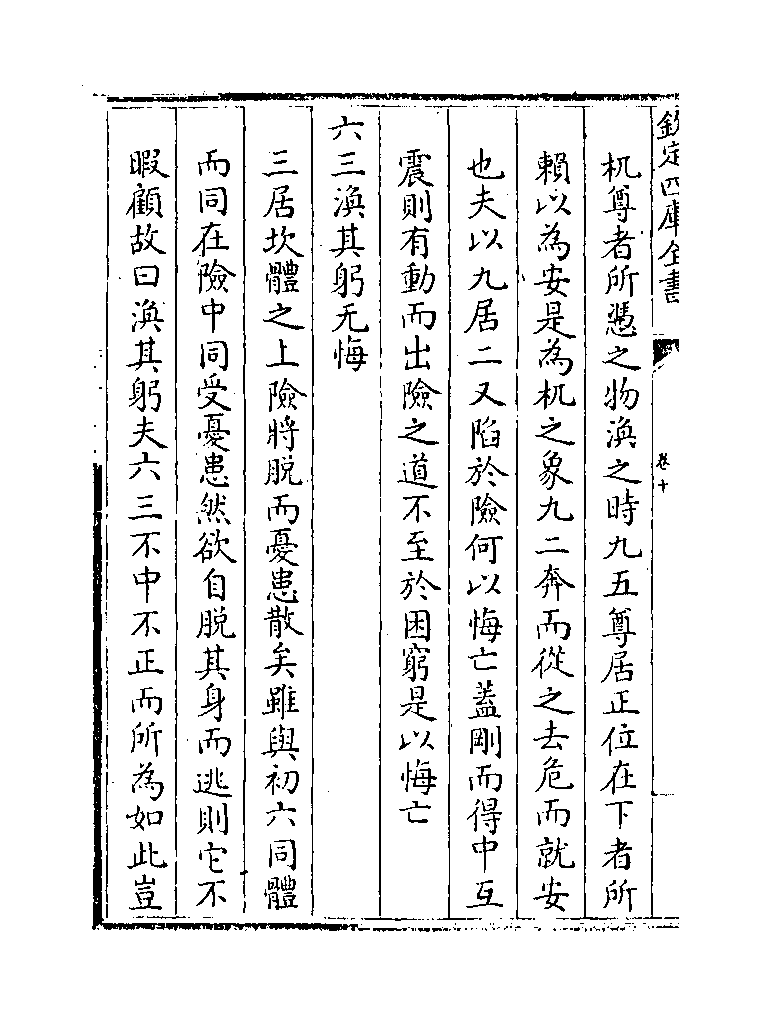 欽定四庫全書
卷十
机尊者所憑之物渙之時九五尊居正位在下者所
賴以為安是為机之象九二奔而從之去危而就安
也夫以九居二又陷於險何以悔亡蓋剛而得中互
震則有動而出險之道不至於困窮是以悔亡
六三渙其躬无悔
三居坎體之上險將脱而憂患散矣雖與初六同體
而同在險中同受憂患然欲自脱其身而逃則它不
暇顧故曰渙其躬夫六三不中不正而所為如此豈